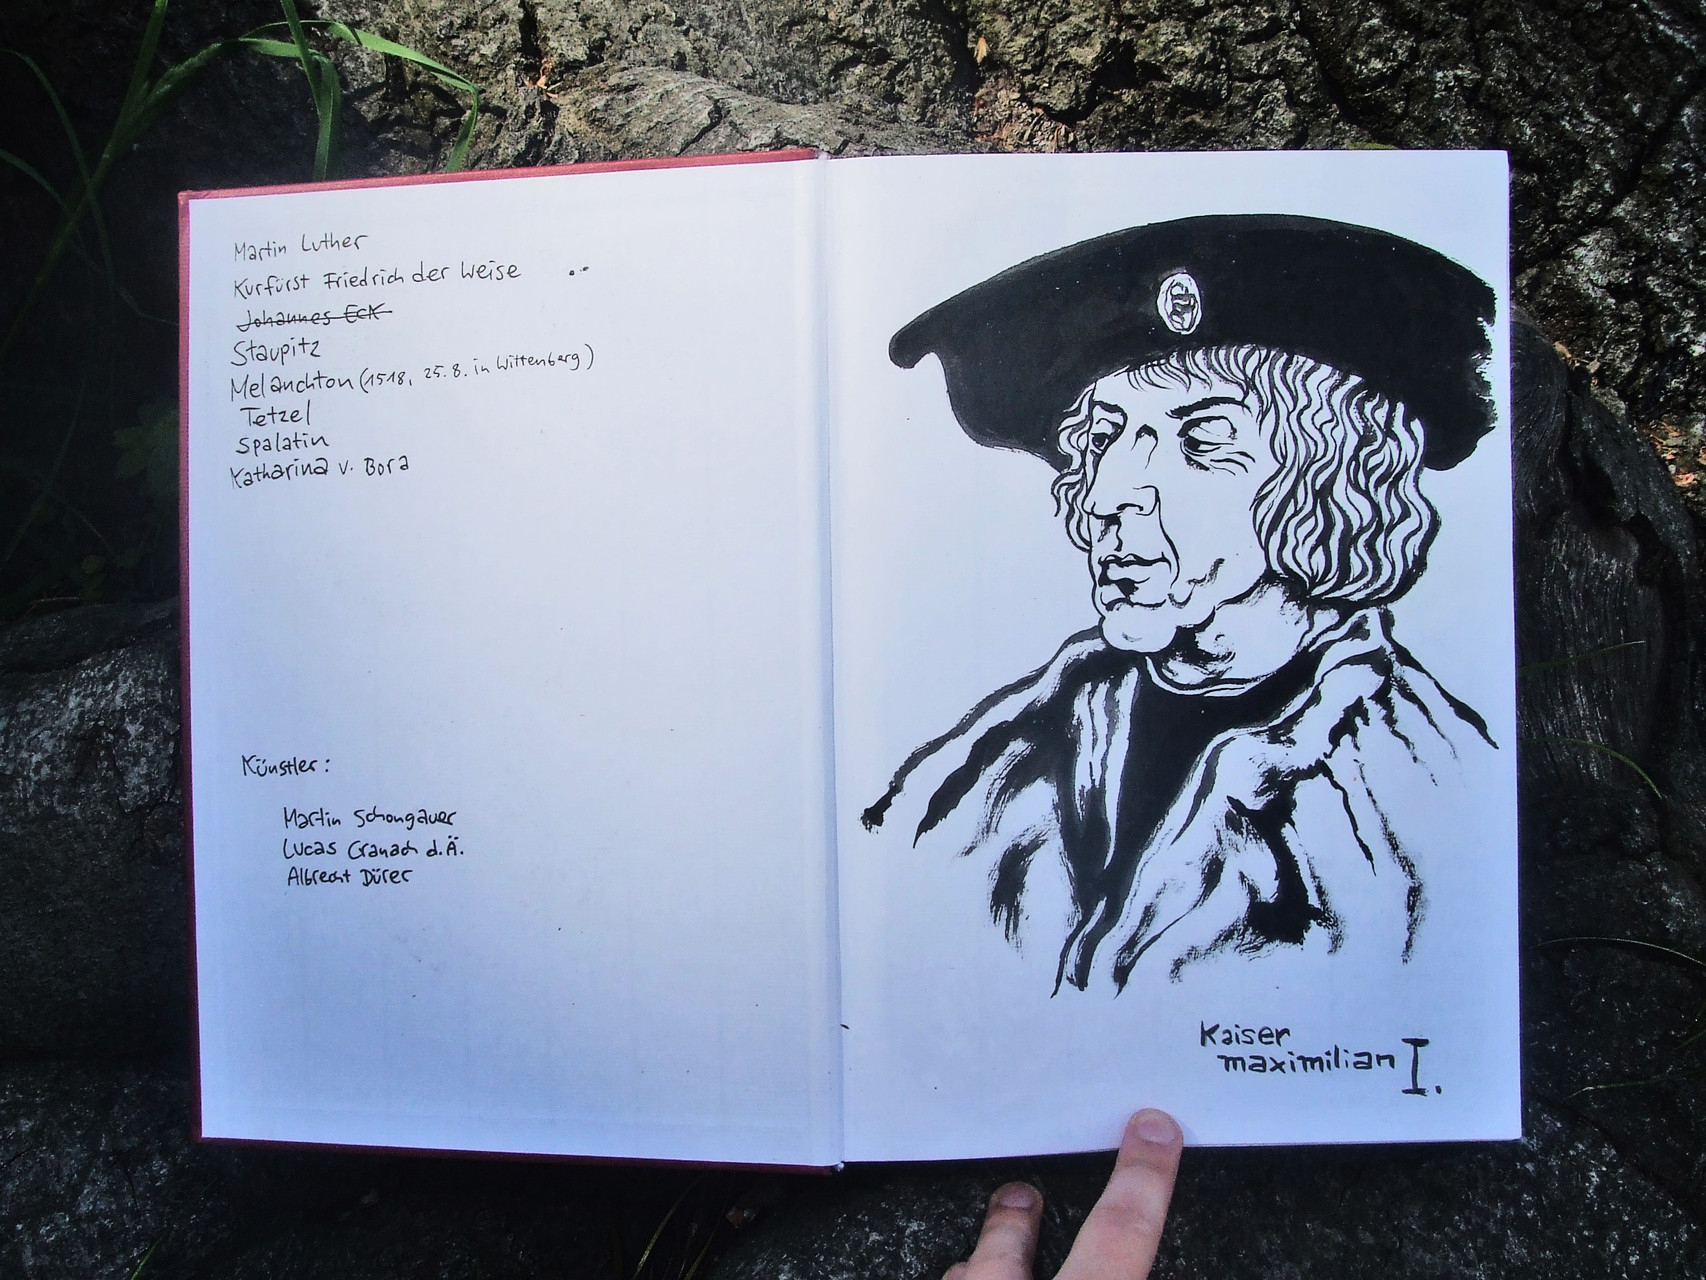 Martin Luther
Kurfürst Friedrich der Weise
Johannes Eck
Staupitz
Melanchton (1518, 25.8. in Wittenberg)
Tetzel
Spalatin
Katharina v. Bora
Künstler:
Martin Schongauer
Lucas Cranach d.Ä.
Albrecht Dürer
Kaiser
maximilian I.